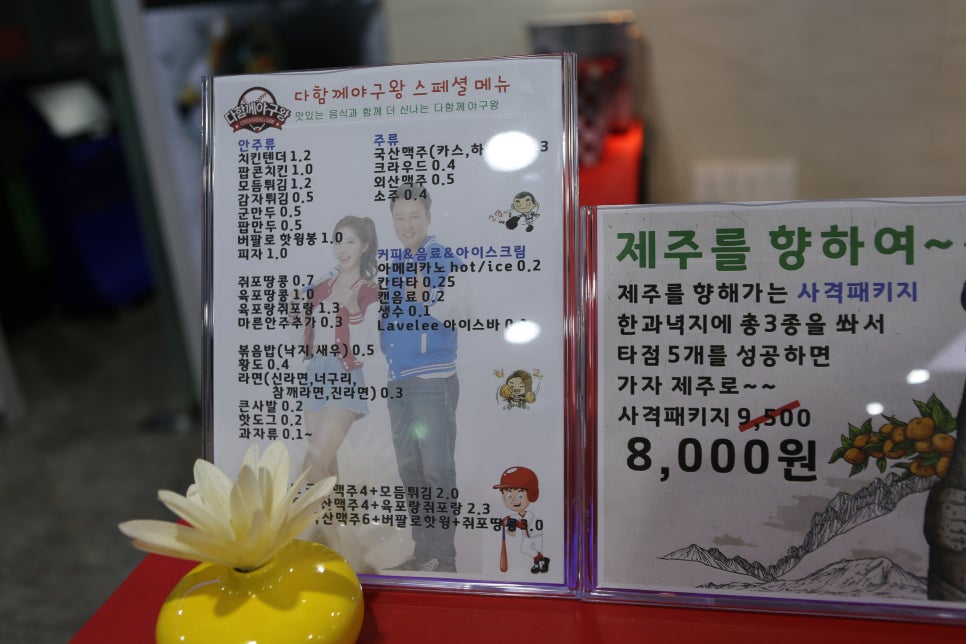 다함께야구왕
다함께야구왕 스페셜 메뉴
맛있는 음식과 함께 더 신나는 다함께야구왕
안주류
치킨텐더 1.2
팝콘치킨 1.0
모듬튀김 1.2
감자튀김 0.5
군만두 0.5
팝만두 0.5
버팔로 핫윙봉 1.0
피자 1.0
쥐포땅콩 0.7
육포땅콩 1.0
육포랑쥐포랑 1.3
마른안주추가 0.3
볶음밥(낙지,새우) 0.5
황도 0.4
라면(신라면,너구리,
참깨라면,진라면) 0.3
큰사발 0.2
핫도그 0.2
과자류 0.1~
주류
국산맥주(카스,하
크라우드 0.4
외산맥주 0.5
소주 0.4
커피&음료&아이스크림
아메리카노 hot/ice 0.2
칸타타 0.25
캔음료 0.2
생수 0.1
Lavelee 아이스바
맥주4+모듬튀김 2.0
산맥주4+육포랑쥐포랑 2.3
산맥주6+버팔로핫윙+쥐포땅콩 3.0
제주를 향하여~
제주를 향해가는 사격패키지
한과녁지에 총3종을 쏴서
타점 5개를 성공하면
가자 제주로~~
사격패키지 9,500
8,000원